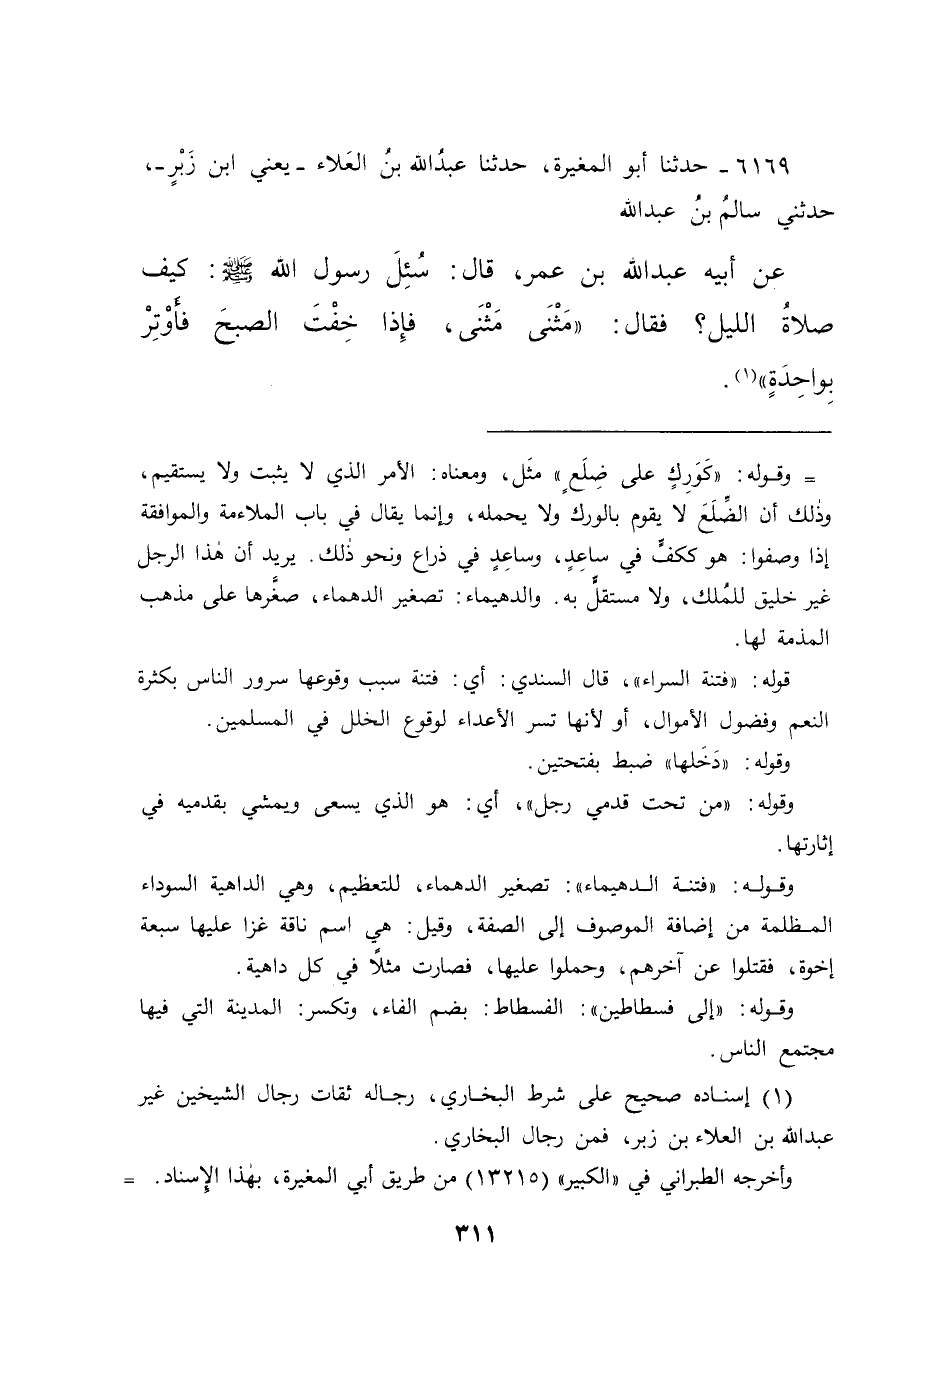 ٦١٦٩ - حدثنا أبو المغيرة، حدثنا عبدُالله بنُ العَلاء - يعني ابن زَبْرٍ -،
حدثني سالمُ بنُ عبدالله
عن أبيه عبدالله بن عمر، قال: سُئِلَ رسول الله ﷺ: كيف
صلاةُ الليل؟ فقال: «مَثْنَى مَثْنَى، فإِذا خِفْتَ الصبحَ فأَوْتِرْ
بِواحِدَةٍ»(١).
= وقوله: «كَوَرِكٍ على ضِلَعٍ» مثَل، ومعناه: الأمر الذي لا يثبت ولا يستقيم،
وذٰلك أن الضِّلَعَ لا يقوم بالورك ولا يحمله، وإنما يقال في باب الملاءمة والموافقة
إذا وصفوا: هو ككفٍّ في ساعِدٍ، وساعِدٍ في ذراع ونحو ذٰلك. يريد أن هٰذا الرجل
غير خليق للمُلك، ولا مستقلٍّ به. والدهيماء: تصغير الدهماء، صغَّرها على مذهب
المذمة لها.
قوله: «فتنة السراء»، قال السندي: أي: فتنة سبب وقوعها سرور الناس بكثرة
النعم وفضول الأموال، أو لأنها تسر الأعداء لوقوع الخلل في المسلمين.
وقوله: «دَخَلها» ضبط بفتحتين.
وقوله: «من تحت قدمي رجل»، أي: هو الذي يسعى ويمشي بقدميه في
إثارتها.
وقوله: «فتنة الدهيماء»: تصغير الدهماء، للتعظيم، وهي الداهية السوداء
المظلمة من إضافة الموصوف إلى الصفة، وقيل: هي اسم ناقة غزا عليها سبعة
إخوة، فقتلوا عن آخرهم، وحملوا عليها، فصارت مثلًا في كل داهية.
وقوله: «إلى فسطاطين»: الفسطاط: بضم الفاء، وتكسر: المدينة التي فيها
مجتمع الناس.
(١) إسناده صحيح على شرط البخاري، رجاله ثقات رجال الشيخين غير
عبدالله بن العلاء بن زبر، فمن رجال البخاري.
وأخرجه الطبراني في «الكبير» (١٣٢١٥) من طريق أبي المغيرة، بهٰذا الإِسناد. =
٣١١